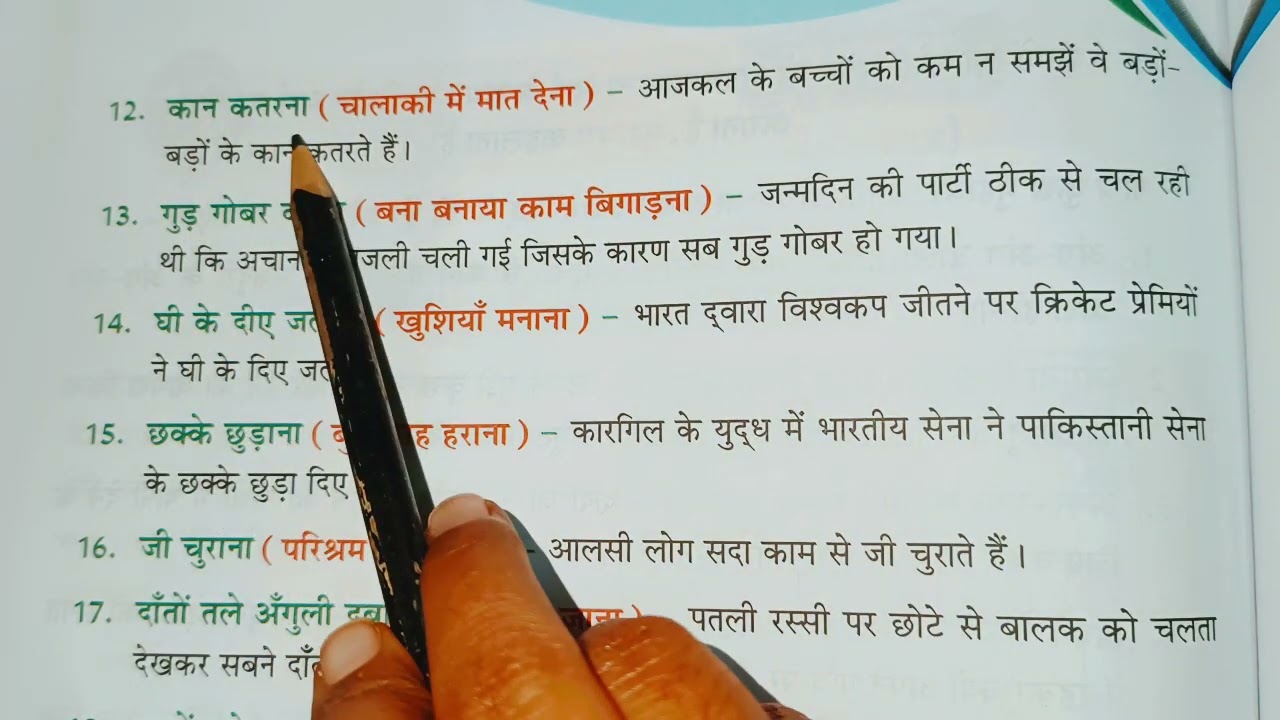 12. कान कतरना ( चालाकी में मात देना ) – आजकल के बच्चों को कम न समझें वे बड़ों-
बड़ों के कान कतरते हैं।
13. गुड़ गोबर ( बना बनाया काम बिगाड़ना ) – जन्मदिन की पार्टी ठीक से चल रही
थी कि चली गई जिसके कारण सब गुड़ गोबर हो गया।
14. घी के दीए ( खुशियाँ मनाना ) – भारत द्वारा विश्वकप जीतने पर क्रिकेट प्रेमियों
ने घी के दिए
15. छक्के छुड़ाना ( हराना ) – कारगिल के युद्ध में भारतीय सेना ने पाकिस्तानी सेना
के छक्के छुड़ा दिए
16. जी चुराना ( परिश्रम – आलसी लोग सदा काम से जी चुराते हैं।
17. दाँतों तले अँगुली ) – पतली रस्सी पर छोटे से बालक को चलता
देखकर सबने